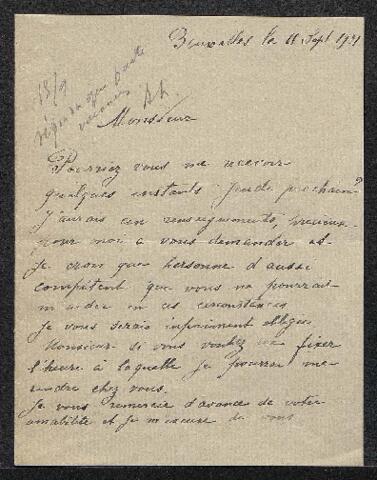 Bruxelles le 11 Sept 1921
15/9
vacances
Monsieur
Pourriez vous me recevoir
quelques instants jeudi prochain?
J'aurais un renseignement, précieux
pour moi a vous demander et
Je crois que personne d'aussi
compétent que vous ne pourrait
m'aider en ces circonstances
Je vous serais infiniment obligé
Monsieur si vous vouliez me fixer
l'heure à laquelle je pourrai me
rendre chez vous.
Je vous remercie d'avance de votre
amabilité et je m'excuse de vous